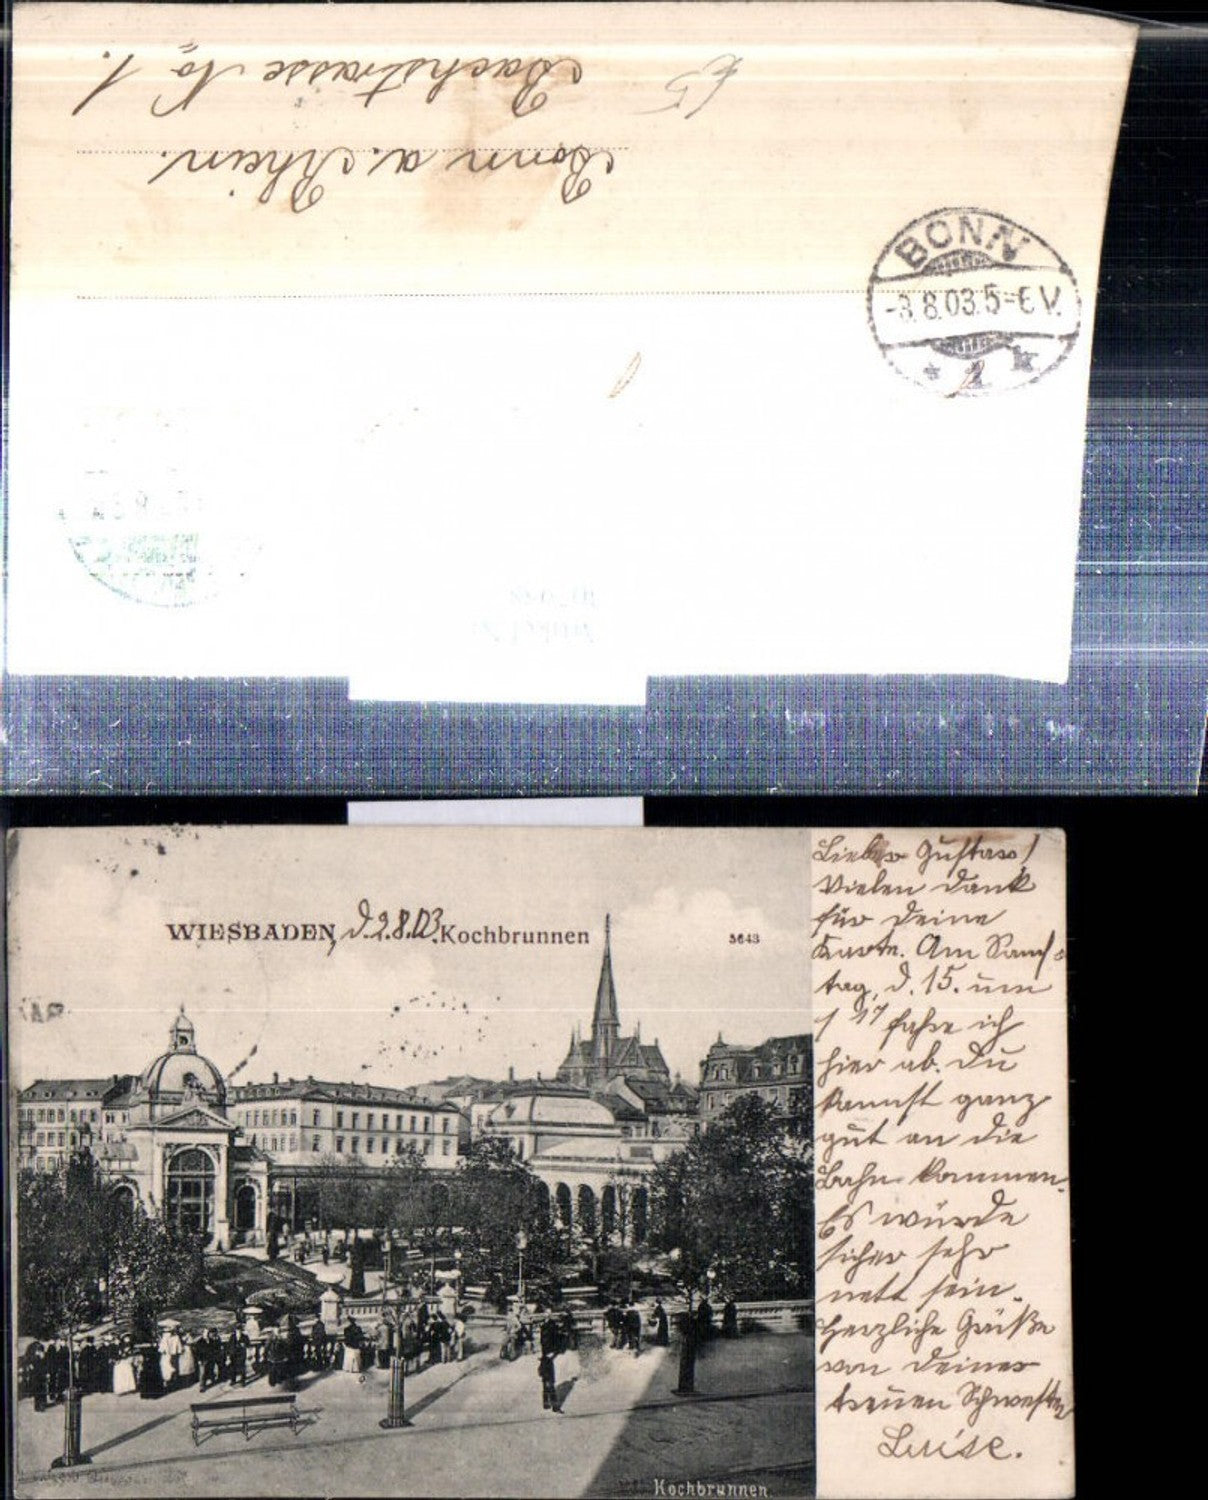 Bachstrasse No 1.
Bonn a. Rhein.
£5
BONN
-3.8.03.5-6V.
* 1 k
WIESBADEN, d. 2.8.03. Kochbrunnen
3643
Lieber Gustav!
Vielen Dank
für Deine
Karte. Am Sams-
tag, d. 15. um
1 17 fahre ich
hier ab. Du
kannst ganz
gut an die
Bahn kommen.
Es würde
sicher sehr
nett sein.
Herzliche Grüße
von Deiner
treuen Schwester
Luise.
Kochbrunnen